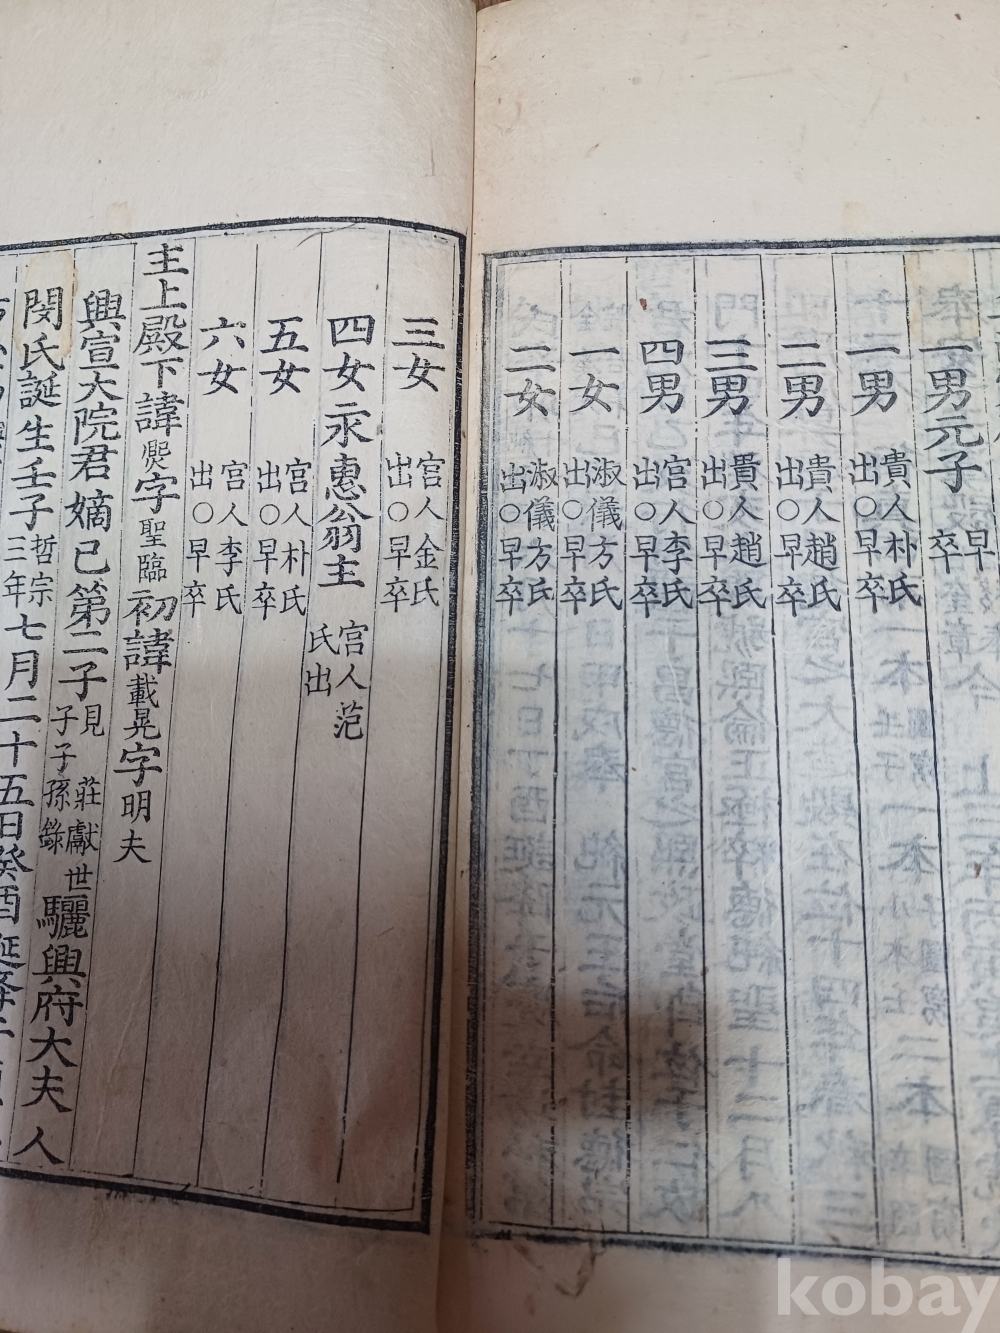 一男元子 早卒
一男 貴人朴氏出○早卒
二男 貴人趙氏出○早卒
三男 貴人趙氏出○早卒
四男 宮人李氏出○早卒
一女 淑儀方氏出○早卒
二女 淑儀方氏出○早卒
三女 宮人金氏出○早卒
四女永惠翁主 宮人范氏出
五女 宮人朴氏出○早卒
六女 宮人李氏出○早卒
主上殿下諱㷩字聖臨初諱載晃字明夫
興宣大院君嫡己第二子見莊獻世子子孫錄驪興府大夫人
閔氏誕生壬子哲宗三年七月二十五日癸酉誕降于
kobay